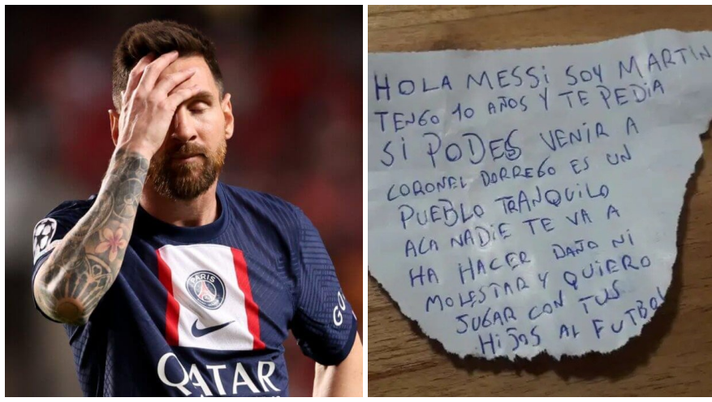 PARIS
QATAR
GO
HOLA MESSI SOY MARTIN
TENGO 10 AÑOS Y TE PEDIA
SI PODES VENIR A
CORONEL DORREGO ES UN
PUEBLO TRANQUILO
ACA NADIE TE VA A
HA HACER DAÑO NI
MOLESTAR Y QUIERO
JUGAR CON TUS
HIJOS AL FUTBOL